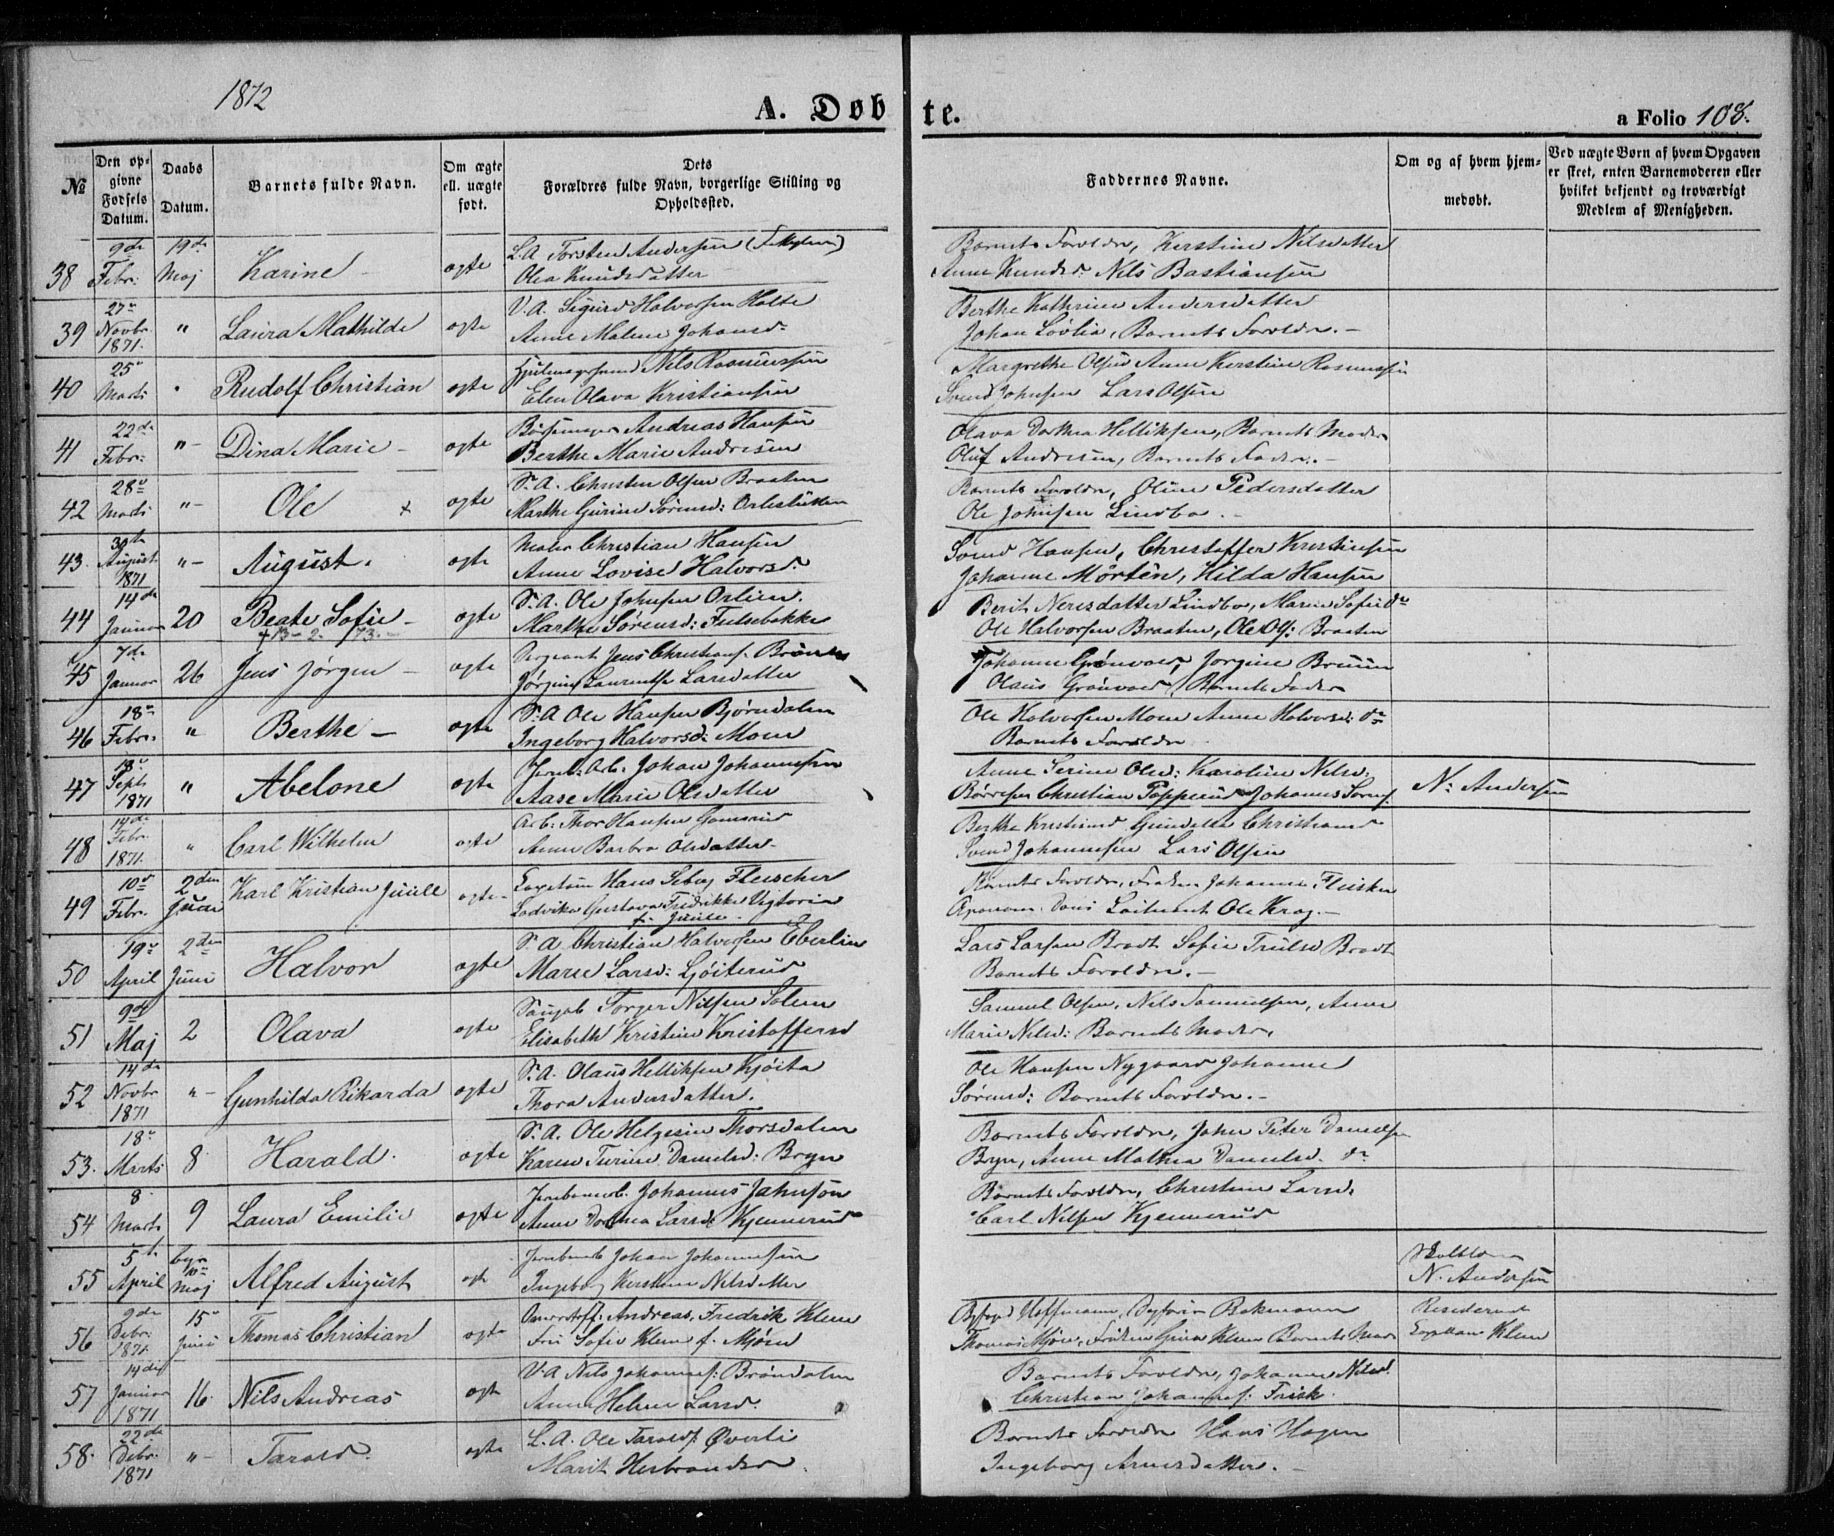 1872
A. Døbte.
a Folio 108.
№
Den opgivne Fødsels Datum.
Daabs Datum.
Barnets fulde Navn.
Om ægte ell. uægte født.
Dets Forældres fulde Navn, borgerlige Stilling og Opholdssted.
Faddernes Navne.
Om og af hvem hjemmedøbt.
Ved uægte Børn af hvem Opgaven er skeet, enten Barnemoderen eller hvilket bekjendt og troværdigt Medlem af Menigheden.
38 9de Febr: 19de Maj Karine ægte L.A. Torsten Andersen
Olea Knudsdatter
Barnets Foreldre, Kerstine Nilsdatter
Anne Knudsd: Nils Bastiansen
39 27de Novbr 1871. " Laura Mathilde ægte V.A. Sigurd Halvorsen Holte
Anne Malene Johansd:
Berthe Kathrine Andersdatter
Johan Løvlia, Barnets Foreldre.
40 25de Marts " Rudolf Christian ægte Nils Rasmussen
Elen Olava Kristiansen
Margrethe Olsen Anne Kerstine Rasmussen
Svend Johnsen Lars Olsen
41 22de Febr: " Dina Marie ægte Andreas Hansen
Berthe Marie Andresen
Olava Dorthea Helliksen, Barnets Moder
Oluf Andresen, Barnets Fader.
42 28de Marts " Ole x ægte S.A. Christen Olsen Braaten
Marthe Gurine Sørensd:
Barnets Foreldre, Oline Pedersdatter
Ole Johnsen Lindbo.
43. 30te August 1871 " August. ægte Maler Christian Hansen
Anne Lovise Halvorsd
Svend Hansen, Christoffer Kristiansen
Johanne Mørten, Hilda Hansen
44 14de Januar 20 Beate Sofie ægte S.A. Ole Johnsen Orlien.
+ 13-2. 73.
Marthe Sørensd:
Berit Neresdatter Lindbo, Marie Sofie do
Ole Halvorsen Braaten, Ole Ols: Braaten
45 7de Januar 26 Jens Jørgen ægte Sergeant Jens Christians.
Jørgine Laurentse Larsdatter
Johanne Grønvold, Jørgine Bruun
Olaus Grønvold, Barnets Fader
46 18de Febr. " Berthe ægte S.A. Ole Hansen Bjørndalen
Ingeborg Halvorsd: Moen
Ole Halvorsen Moen Anne Halvorsd: do
Barnets Foreldre
47 Septb 1871 " Abelone ægte Jernb: Arb. Johan Johannesen
Aase Marie Olsdatter
Anne Serine Olsd: Karoline Nilsd:
Christian Popperud Johannes
N. Andersen
48 14de Febr: 1871. " Carl Wilhelm ægte Arb: Thor Hansen
Anne Barbro Olsdatter
Berthe Kristiansd Gunelde Christiansd
Svend Johannesen Lars Olsen
49 10de Febr. 2den Juni Karl Kristian Juell ægte Hans Fleischer
Lodvika Gustava Fredrikke Vigtoria
f. Juell.
Barnets Foreldre, Johanne Fleischer
Ole Krag.
50 19de April 2den Juni Halvor ægte S.A. Christian Halvorsen Eberlin
Marie Larsd:
Lars Larsen Bradt Sofie Trulsd Bradt
Barnets Foreldre.
51 9de Maj 2 Olava ægte Torger Nilsen Solem
Elisabeth Kristine Kristoffersd
Samuel Olsen, Nils Samuelsen, Anne
Marie Nilsd: Barnets Moder,
52 14de Novbr 1871 " Gunhilda Rikarda ægte S.A. Olaus Helliksen Kjøita
Thora Andersdatter.
Ole Hansen Nygaard Johanne
Sørensd: Barnets Foreldre.
53. 18de Marts 8 Harald. ægte S.A. Ole Helgesen Thorsdalen
Karen Turine Danielsd: Bryn
Barnets Foreldre, John Peter Danielsen
Bryn, Anne Mathea Danielsd. do
54 8 Marts 9 Laura Emilie ægte Johannes Johnson
Anne Dorthea Larsd: Kjennerud
Barnets Foreldre, Christine Larsd.
Carl Nilsen Kjennerud
55 5te April Maj Alfred August ægte Johan Johannesen
Ingeborg Kerstine Nilsdatter
N. Andersen
56 9de Debr: 1871. 15de Juni Thomas Christian ægte Andreas Fredrik Klem
Fru Sofie Klem f. Mjøen
Byfogd Hoffmann, Bakmann
Thomas Mjøen, Frøken Klem Barnets Mor
Residerende
Capellan Klem
57 14de Januar 1871 16. Nils Andreas ægte V.A. Nils Johannes: Brøndalen
Anne Helene Larsd.
Barnets Foreldre, Johanne Nilsd.
Christian Johannes: Frisk.
58. 22de Debr. 1871 " Tarald. ægte L.A. Ole Taralds. Øverli
Marit Herbrandsd.
Barnets Foreldre Hans Hagen
Ingeborg Arnesdatter.